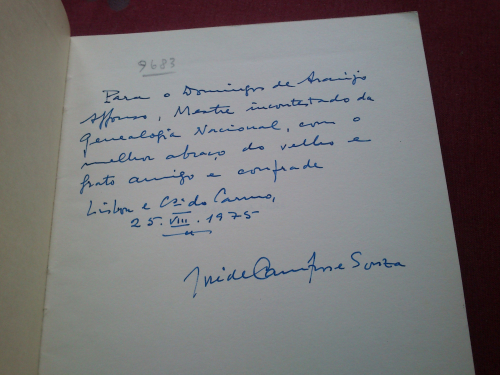 9683
Para o Domingos de Araújo
Affonso, Mestre incontestado da
Genealogia Nacional, com o
melhor abraço do velho e
grato amigo e confrade
Lisboa e Cz. do Carmo,
25.VIII.1975
José de Campos e Souza